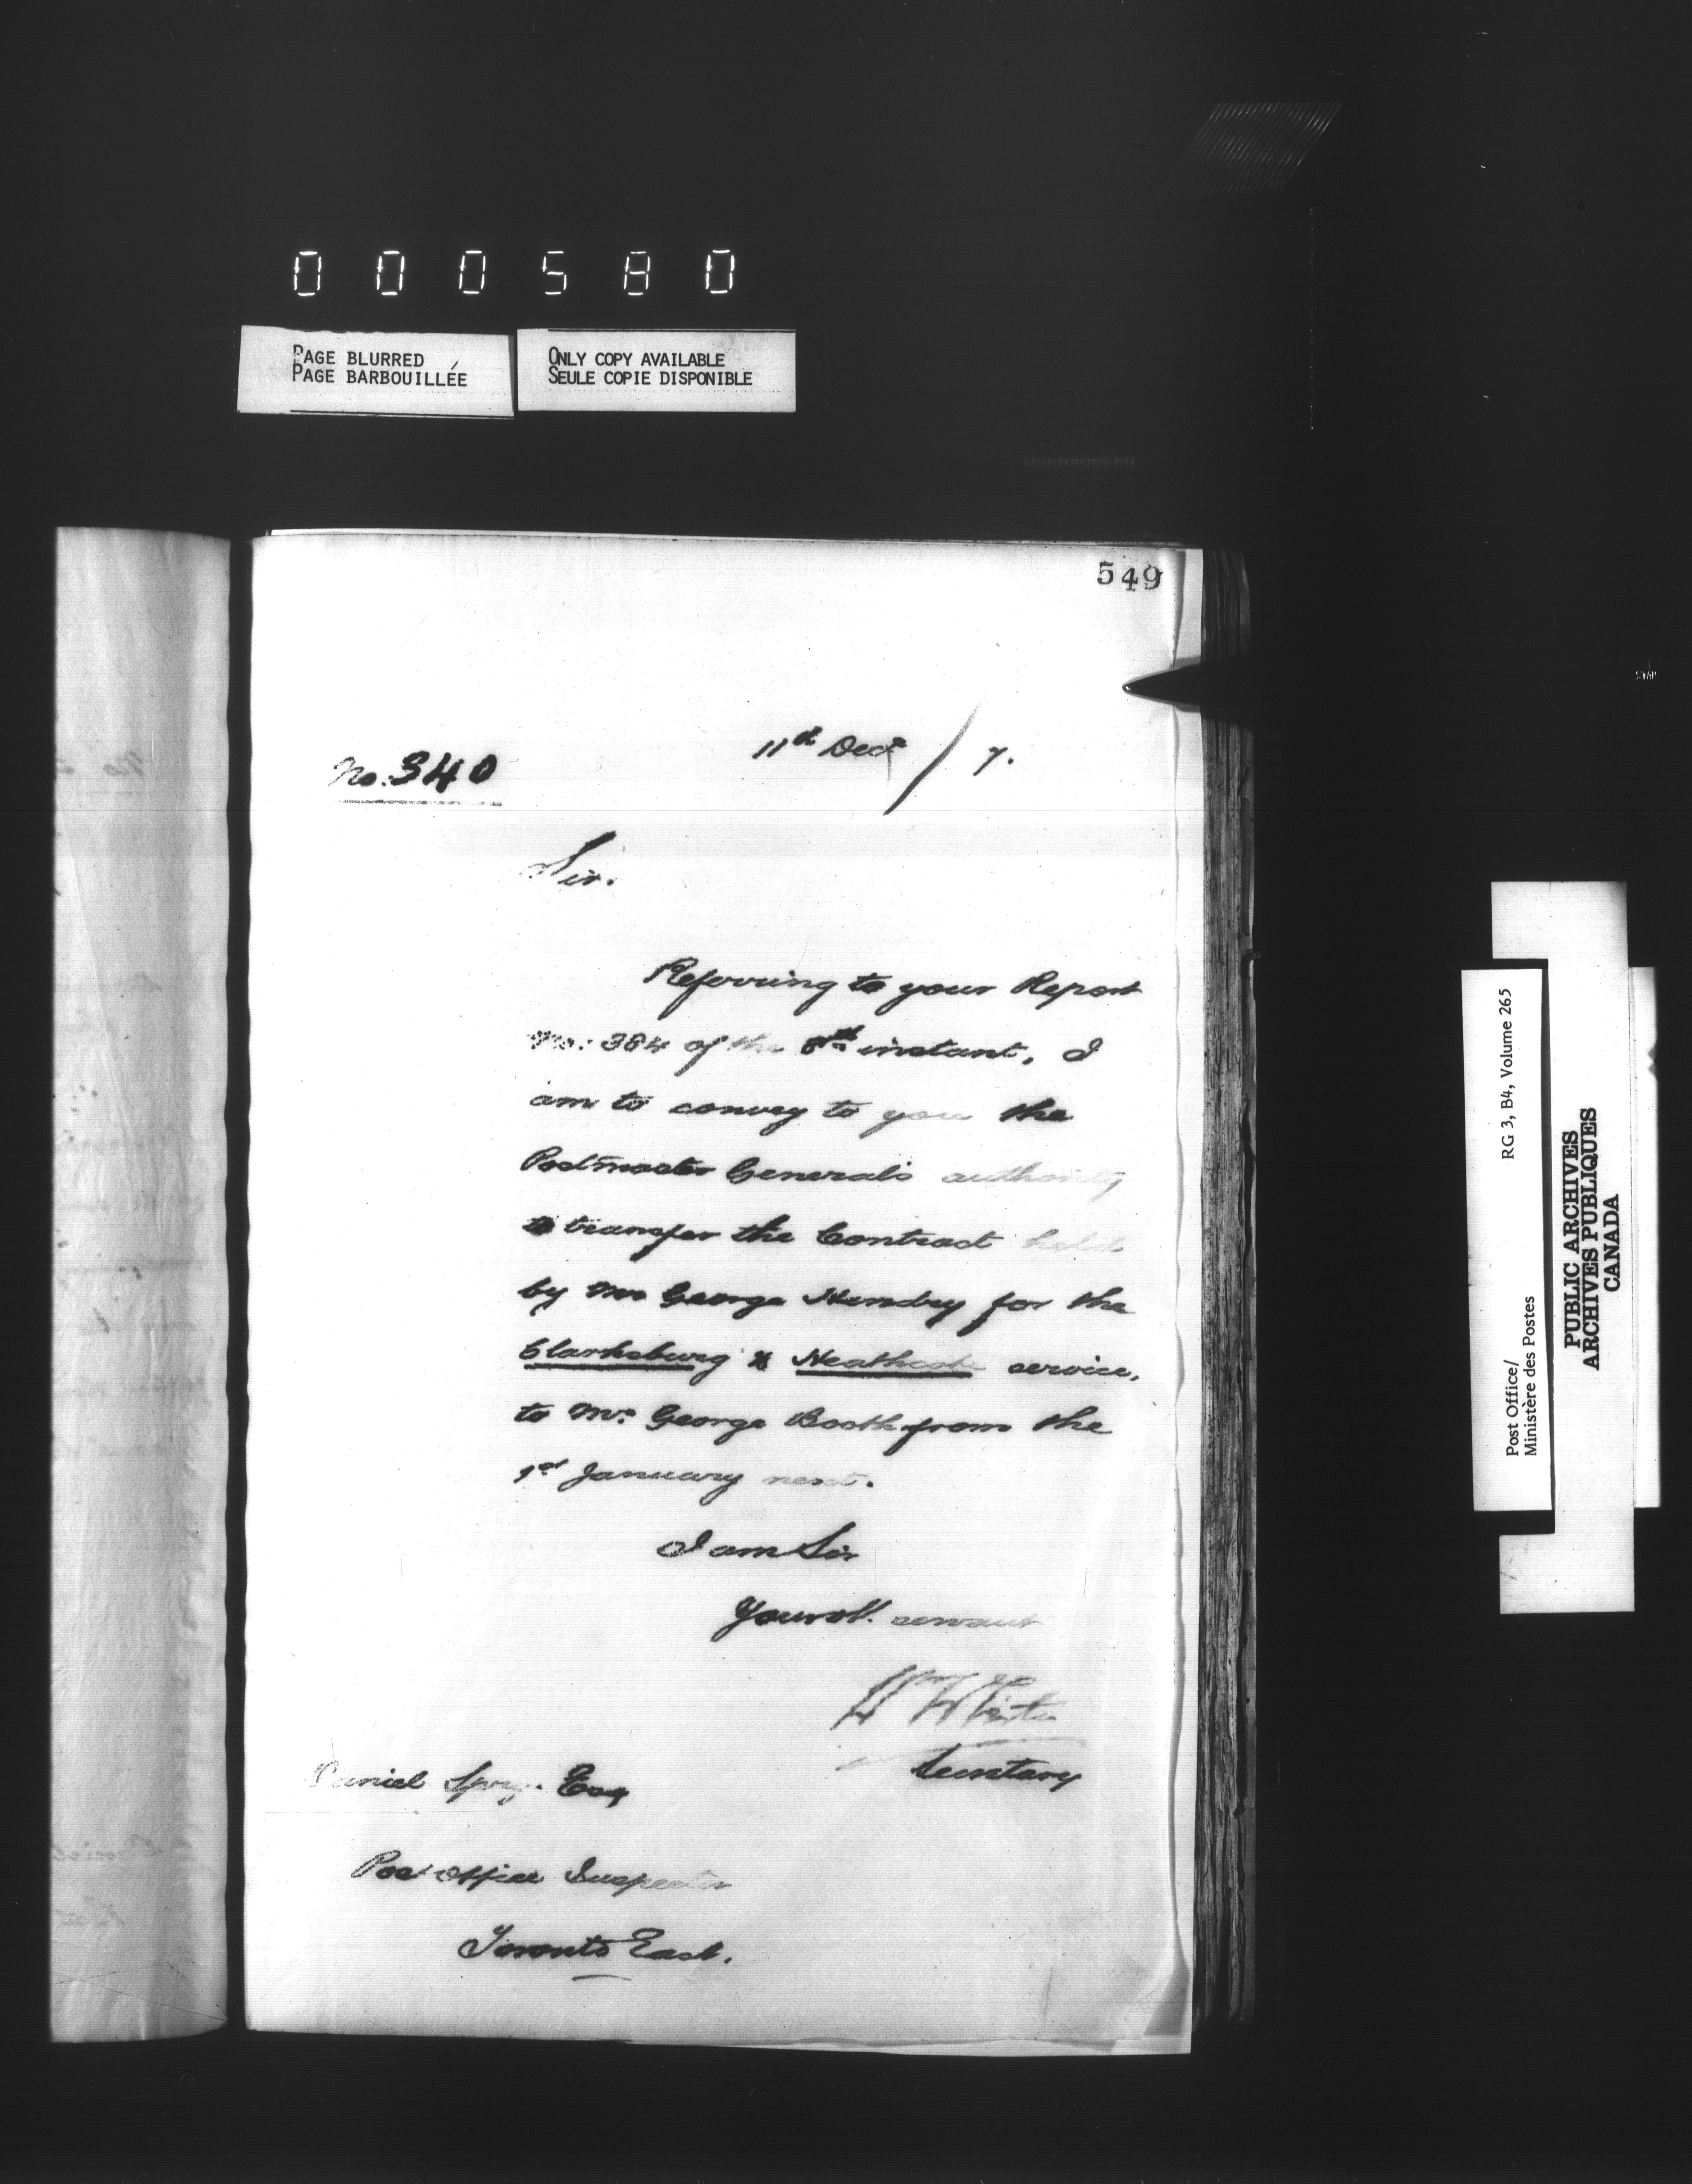 000580
PAGE BLURRED
PAGE BARBOUILLÉE
ONLY COPY AVAILABLE
SEULE COPIE DISPONIBLE
549
No. 340
11th Decr / 7.
Sir.
Referring to your Report
No. 384 of the 8th instant, I
am to convey to you the
Postmaster General's authority
to transfer the Contract held
by Mr George Hendry for the
Clarksburg & Heathcote service,
to Mr. George Booth from the
1st January next.
I am Sir
Your ob. servant
Secretary
Daniel Spry Esq
Post Office Inspector
Toronto East.
Post Office/
Ministère des Postes
RG 3, B4, Volume 265
PUBLIC ARCHIVES
ARCHIVES PUBLIQUES
CANADA